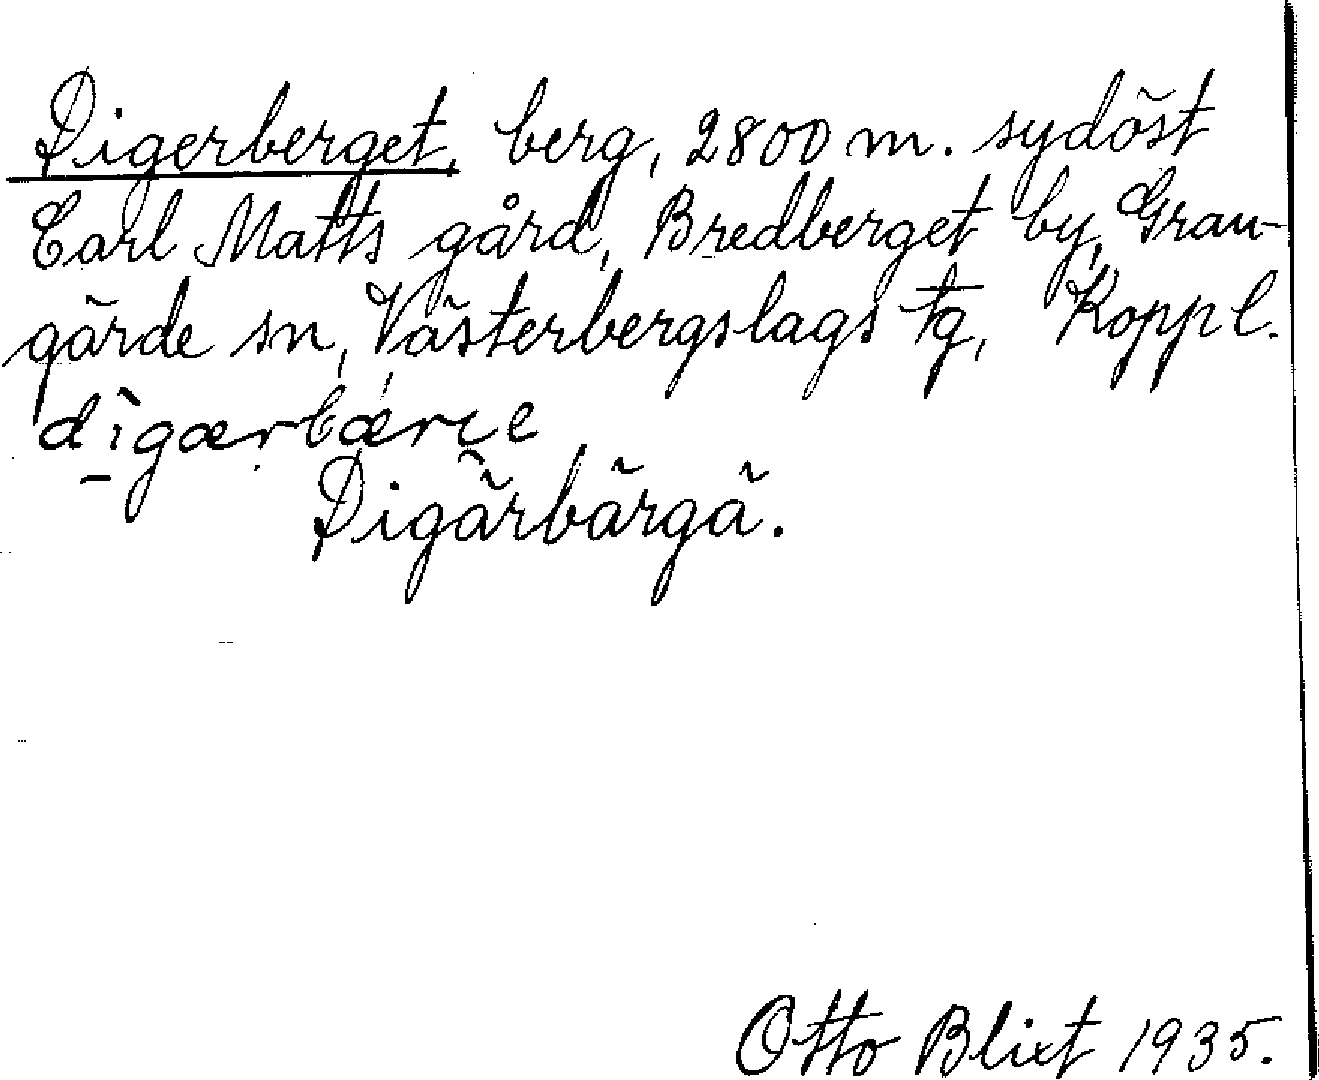 Digerberget, berg, 2800 m. sydöst
Carl Matts gård, Bredberget by, Gran-
gärde sn, Västerbergslags tg, Koppl.
dìgærbærɪe
Digärbärgä.
Otto Blixt 1935.